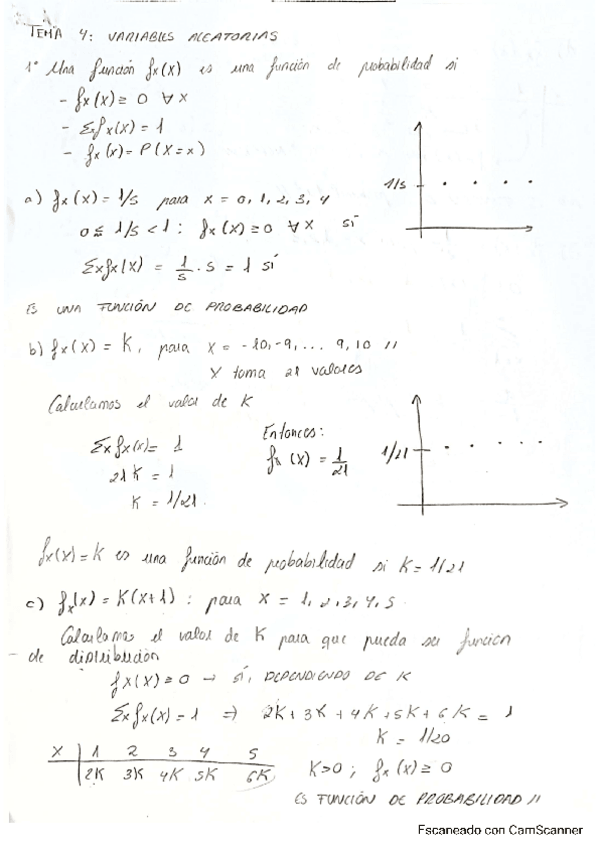 TEMA 4: VARIABLES ALEATORIAS
1º Una función fx(x) es una función de probabilidad si
- fx(x) ≥ 0 ∀x
- Σfx(x) = 1
- fx(x) = P(X=x)
a) fx(x) = 1/5 para x = 0, 1, 2, 3, 4
0 ≤ 1/5 < 1 : fx(x) ≥ 0 ∀x sí
Σxfx(x) = 1/5 · 5 = 1 sí
1/5
ES UNA FUNCIÓN DE PROBABILIDAD
b) fx(x) = K, para x = -10, -9, ... 9, 10 //
X toma 21 valores
Calculamos el valor de K
Σxfx(x) = 1
21K = 1
K = 1/21.
Entonces:
fx(x) = 1/21
1/21
fx(x) = K es una función de probabilidad si K = 1/21
c) fx(x) = K(x+1) : para x = 1, 2, 3, 4, 5.
Calculamos el valor de K para que pueda ser funcion
- de distribución
fx(x) ≥ 0 → SÍ, DEPENDIENDO DE K
Σxfx(x) = 1 ⇒ 2K + 3K + 4K + 5K + 6K = 1
K = 1/20
X | 1 2 3 4 5
2K 3K 4K 5K 6K
K>0 ; fx(x) ≥ 0
ES FUNCIÓN DE PROBABILIDAD //
Escaneado con CamScanner